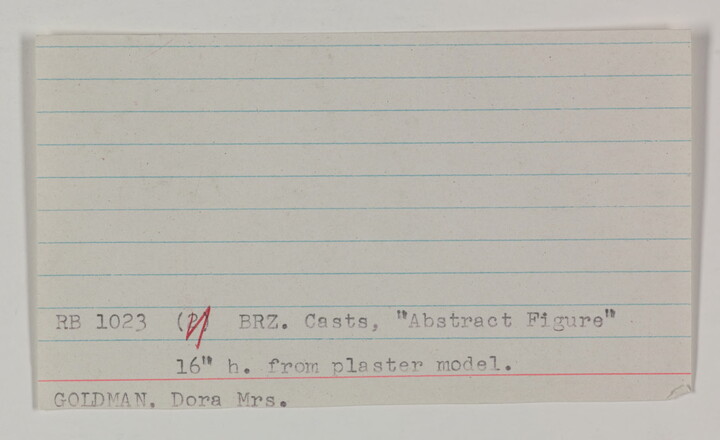 RB 1023 (2) BRZ. Casts, "Abstract Figure"
16" h. from plaster model.
GOLDMAN, Dora Mrs.